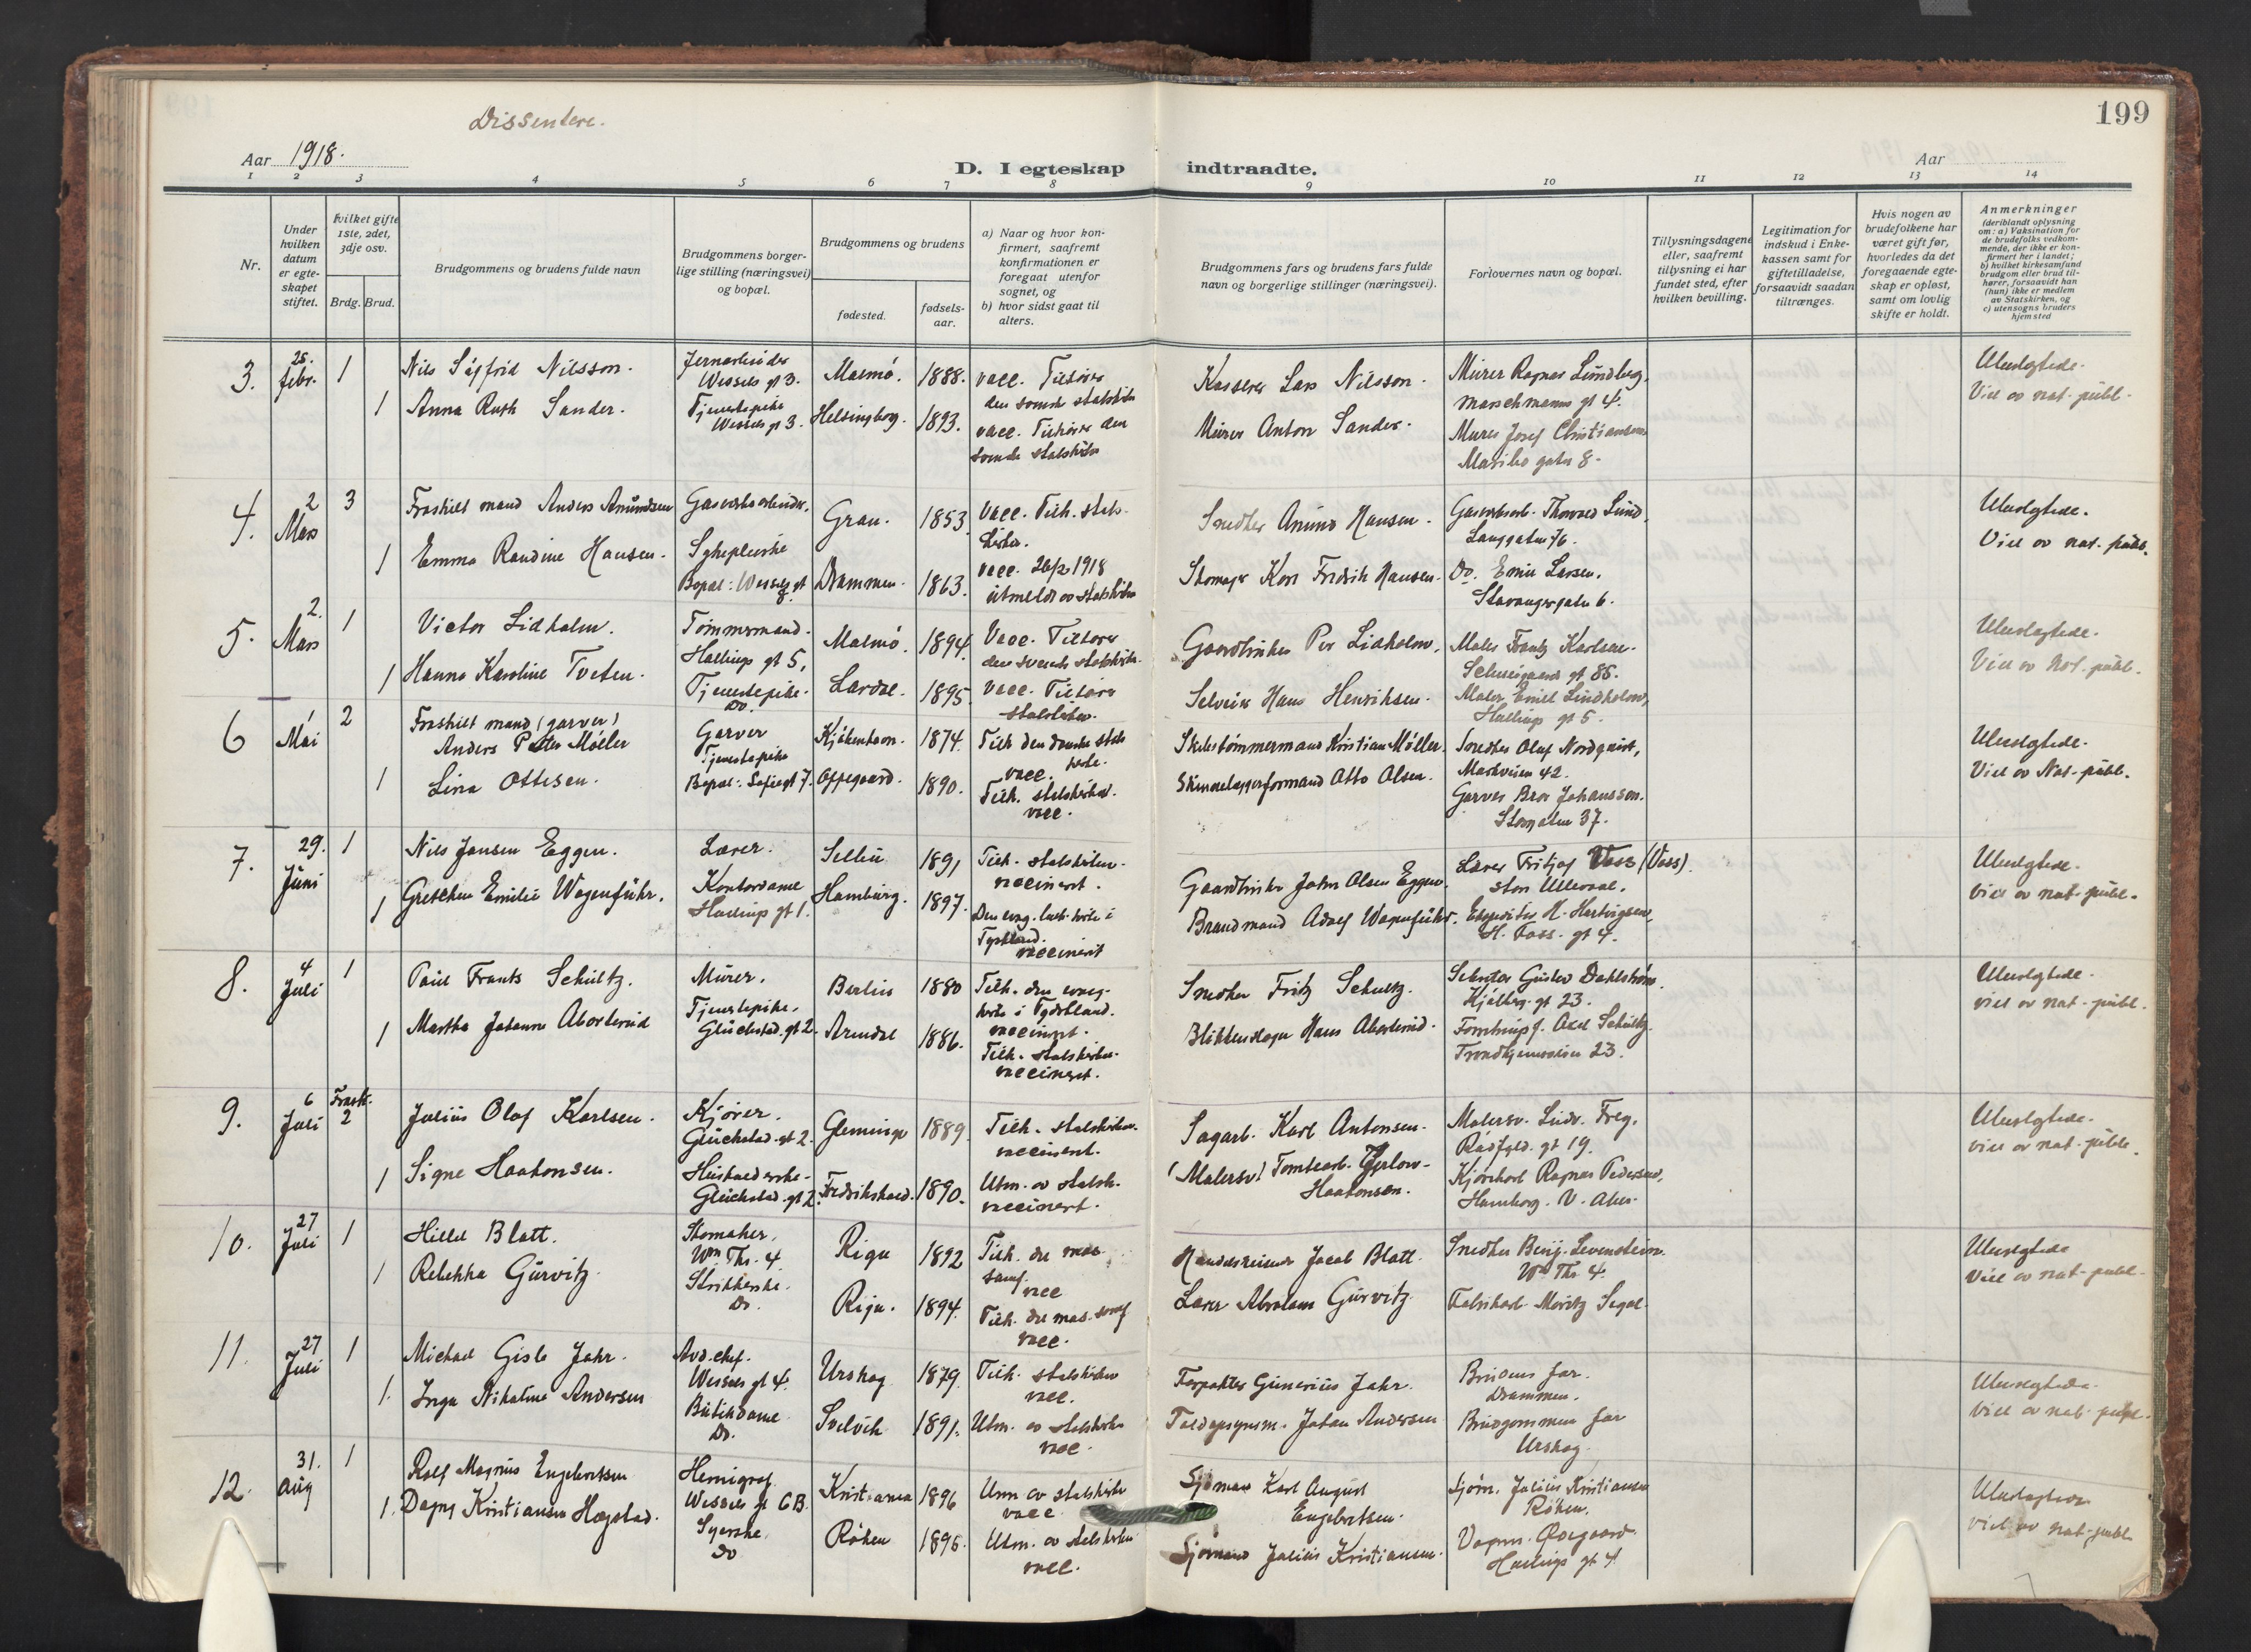 Dissentere.
199
Aar 1918.
D. I egteskap indtraadte.
Aar
1 2 3 4 5 6 7 8 9 10 11 12 13 14
Nr.
Under hvilken datum er egte-skapet stiftet.
Hvilket gifte 1ste, 2det, 3dje osv.
Brdg. Brud.
Brudgommens og brudens fulde navn
Brudgommens borger-lige stilling (næringsvei) og bopæl.
Brudgommens og brudens
fødested.
fødsels-aar.
a) Naar og hvor kon-firmert, saafremt konfirmationen er foregaat utenfor sognet, og
b) hvor sidst gaat til alters.
Brudgommens fars og brudens fars fulde navn og borgerlige stillinger (næringsvei).
Forlovernes navn og bopæl.
Tillysningsdagene eller, saafremt tillysning ei har fundet sted, efter hvilken bevilling.
Legitimation for indskud i Enke-kassen samt for giftetilladelse, forsaavidt saadan tiltrænges.
Hvis nogen av brudefolkene har været gift før, hvorledes da det foregaaende egte-skap er opløst, samt om lovlig skifte er holdt.
Anmerkninger
(deriblandt oplysning om: a) Vaksination for de brudefolks vedkom-mende, der ikke er kon-firmert her i landet; b) hvilket kirkesamfund brudgom eller brud til-hører, forsaavidt han (hun) ikke er medlem av Statskirken, og c) utensogns bruders hjemsted
3. 25. febr. 1 Nils Sigfrid Nilsson. Jernarbeider Wessels gt 3. Malmö. 1888. vacc. Tilhører den svenske statskirke Kasserer Lars Nilsson. Murer Ragnar Lundberg. Marschmanns gt 4. Ubeslegtede. Viet av not. publ.
1 Anna Ruth Sander. Tjenestepike Wessels gt 3. Helsingborg. 1893. vacc. Tilhører den svenske statskirke Murer Anton Sander. Murer Josef Christiansen Maribo gaten 8.
4. 2 Mars 3 Fraskilt mand Anders Amundsen Gasverksarbeider. Gran. 1853. Vacc. Tilh. stats-kirken. Snedker Amund Hansen. Gasverksarb. Thorvald Lund, Langgaten 76. Ubeslegtede. Viet av not. publ.
1 Emma Randine Hansen. Sykepleierske Bopæl: Wessels gt 8. Drammen. 1863. vacc. 26/2 1918 utmeldt av statskirken Skomager Karl Fredrik Hansen. Do. Emil Larsen. Stavangergaten 6.
5. 2. Mars 1 Victor Lidholm. Tømmermand. Hallings gt 5, Malmö. 1894. Vacc. Tilhører den svenske statskirke. Gaardbruker Per Lidholm. Maler Frantz Karlsen. Schweigaards gt 85. Ubeslegtede. Viet av Not. publ.
1 Hanna Karoline Tveten. Tjenestepike. Do. Lardal. 1895. vacc. Tilhører statskirken. Selveier Hans Henriksen. Maler Emil Lindholm, Hallings gt 5.
6 1 Mai 2 Fraskilt mand (garver) Anders Peter Møller Garver Kjøbenhavn. 1874. Tilh. den danske stats kirke. vacc. Skibstømmermand Kristian Møller. Snedker Olaf Nordquist, Markveien 42. Ubeslegtede. Viet av Not. publ.
1 Lina Ottesen. Tjenestepike Bopæl: Sofiegt 7. Oppegaard. 1890. Tilh. statskirken. vacc. Otto Olsen. Garver Bror Johansson. Storgaten 37.
7. 29. Juni 1 Nils Jansen Eggen. Lærer. Selbu 1891 Tilh. statskirken. vaccinert. Gaardbruker John Olsen Eggen. Lærer Fritjof Voss (Voss). Ullevaal. Ubeslegtede. viet av not. publ.
1 Gretchen Emilie Wagenführ. Kontordame Hallings gt 1. Hamburg. 1897. Den evang. luth. kirke i Tyskland. vaccinert Brandmand Adolf Wagenführ. Ekspeditør H. Hartvigsen, gt 4.
8. 4 Juli 1 Paul Frants Schultz. Murer. Berlin 1880 Tilh. den evang. kirke i Tyskland. vaccinert. Snedker Fritz Schultz. Gustav Dahlstrøm. Kjølberg. gt 23. Ubeslegtede. viet av not. publ.
1 Martha Johanne Tjenestepike. Glückstad. gt 2. Arendal 1886. Tilh. statskirken. vaccinert. Blikkenslager Hans Axel Schultz. Trondhjemsveien 23.
9. 6 Juli Frask. 2 Julius Olaf Karlsen. Kjører. Glückstad. gt 2. Glemminge 1889. Tilh. statskirken. vaccinert. Sagarb. Karl Antonsen. Malersv. Ludv. Freg. Raadfyld. gt 19. Ubeslegtede. viet av not. publ.
1 Signe Haakonsen. Husholderske. Glückstad. gt 2. Fredrikshald. 1890. Utm. av statsk. vaccinert. (Malersv.) Tomtearb. Haakonsen. Kjørekarl Ragnar Pedersen, V. Aker.
10. 27 Juli 1 Hillel Blatt. Skomaker. Wm. Thr. 4. Riga 1892 Tilh. det mos. samf. vacc Handelsreisende Jacob Blatt. Snedker Benj. Levenstein. Wm Thr. 4. Ubeslegtede Viet av not. publ.
1 Rebekka Gurvitz. Strikkerske. Do. Riga. 1894. Tilh. det mos. samf vacc. Lærer Abraham Gurvitz. Fabrikarb. Moritz Segal.
11. 27 Juli 1 Michael Gisle Jahr. Avd. chef. Wessels gt 4. Urskog 1879. Tilh. statskirken vacc. Forpakter Gunerius Jahr. Brudens far. Drammen. Ubeslegtede. viet av not. publ.
1. Inga Nikoline Andersen Butikdame Do. Svelvik 1891. Utm. av statskirken vacc. Johan Andersen Brudgommens far Urskog.
12. 31. Aug 1 Rolf Magnus Engebretsen Hemigraf. Wessels gt 6 B. Kristiania 1896 Utm av statskirken vacc Sjømand Karl August Engebretsen. Sjøm. Julius Kristiansen Røken. Ubeslegtede viet av not. publ.
1. Dagny Kristiansen Hogstad. Syerske. Do Røken 1896. Utm. av statskirken vacc. Sjømand Julius Kristiansen. Hallings gt 4.